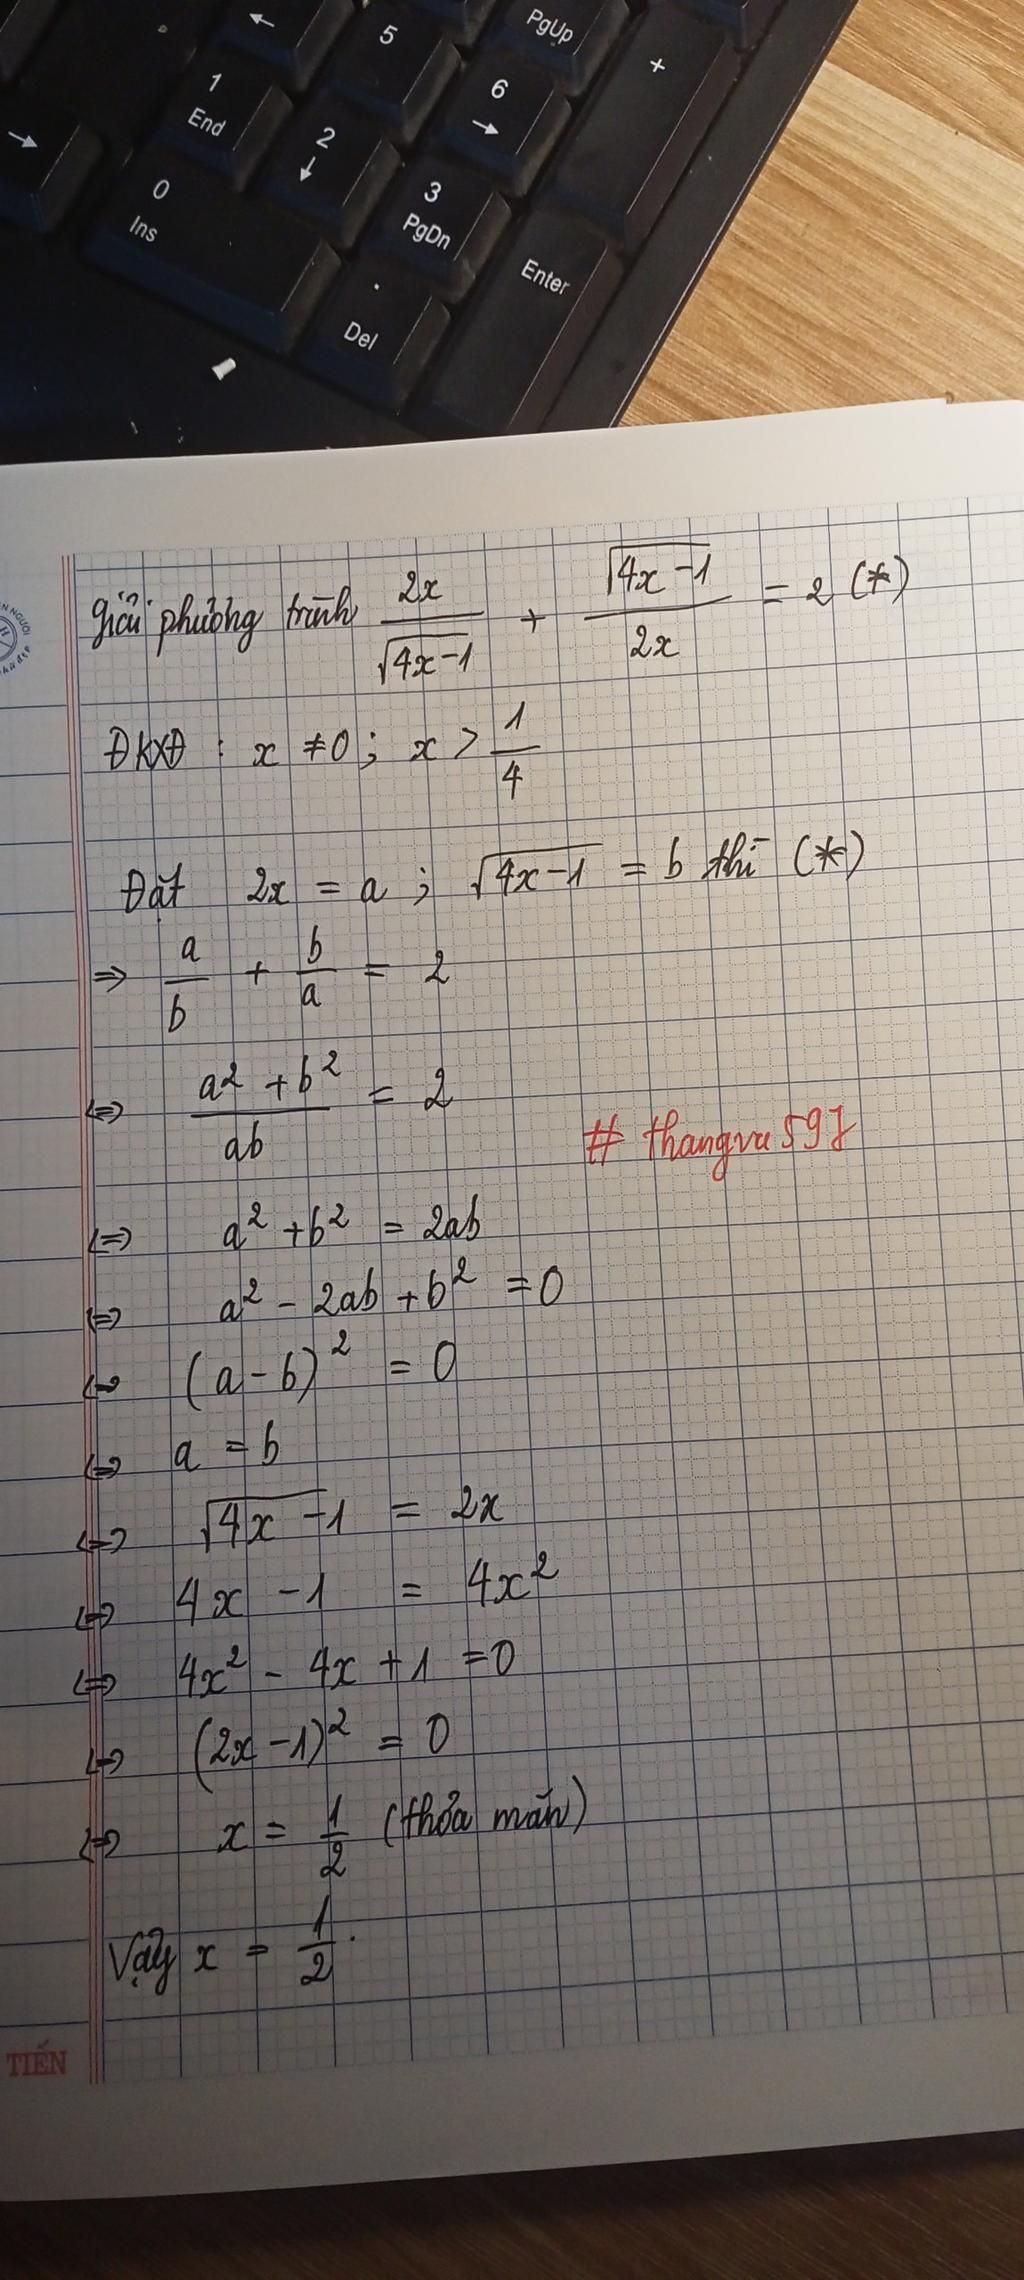 ←
5
PgUp
+
1
End
2
↓
6
→
→
0
Ins
3
PgDn
Enter
.
Del
Giải phương trình 2x/√(4x-1) + √(4x-1)/2x = 2 (*)
ĐKXĐ : x ≠ 0 ; x > 1/4
Đặt 2x = a ; √(4x-1) = b thì (*)
⇒ a/b + b/a = 2
⇔ (a² + b²)/ab = 2
# thangvu597
⇔ a² + b² = 2ab
⇔ a² - 2ab + b² = 0
⇔ (a - b)² = 0
⇔ a = b
⇔ √(4x-1) = 2x
⇔ 4x - 1 = 4x²
⇔ 4x² - 4x + 1 = 0
⇔ (2x - 1)² = 0
⇔ x = 1/2 (thỏa mãn)
Vậy x = 1/2.
TIẾN